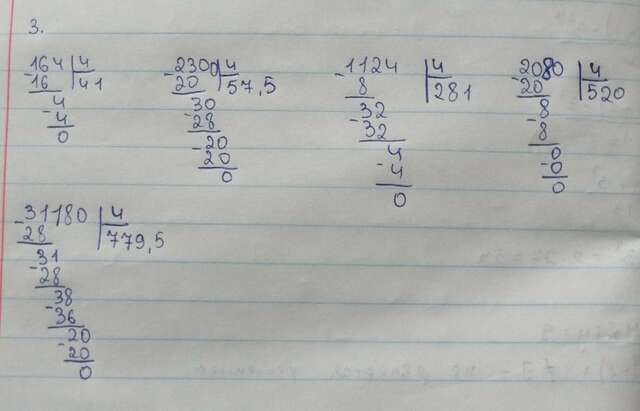 3.
164 4
-16 41
4
-4
0
2300 4
-20 57,5
30
-28
20
-20
0
1124 4
-8 281
32
-32
4
-4
0
2080 4
-20 520
8
-8
0
-0
0
31180 4
-28 779,5
31
-28
38
-36
20
-20
0